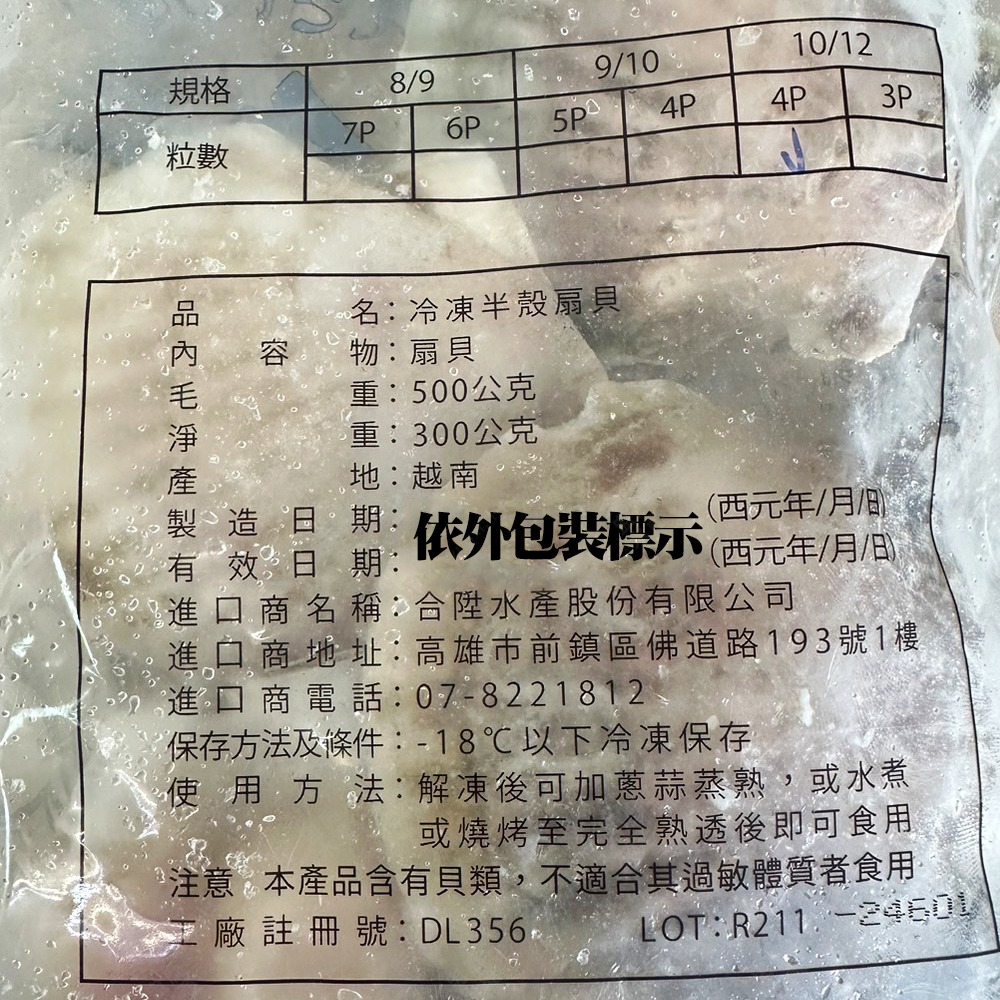 規格 8/9 9/10 10/12
粒數 7P 6P 5P 4P 4P 3P
品名：冷凍半殼扇貝
內容物：扇貝
毛重：500公克
淨重：300公克
產地：越南
製造日期： (西元年/月/日)
依外包裝標示
有效日期： (西元年/月/日)
進口商名稱：合陞水產股份有限公司
進口商地址：高雄市前鎮區佛道路193號1樓
進口商電話：07-8221812
保存方法及條件：-18℃以下冷凍保存
使用方法：解凍後可加蔥蒜蒸熟，或水煮
或燒烤至完全熟透後即可食用
注意 本產品含有貝類，不適合其過敏體質者食用
工廠註冊號：DL356 LOT：R211 -24601